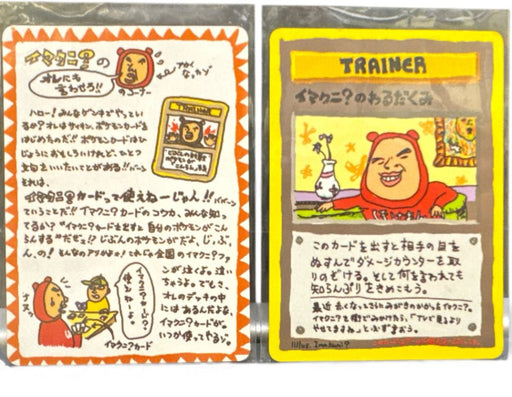 イマクニ?の
オレにも
言わせろ!!
のコーナー
ハロー!みんなゲンキでやってい
るか?オレはサイキン、ポケモンカードを
はじめたのだ!!ポケモンカードはひ
じょうにおもしろいけれど、ひとつ
文句をいいたいことがある!!
それは、
イマクニ?カードって使えねーじゃん!!
ていうことだ!!イマクニ?カードのコウカ、みんな知っ
てるか?"カードを出すと自分のポケモンがこん
らんする"だぜっ!?じぶんのポケモンがだよ、じ、ぶ、
ん、の!そんなのアリかよ!これじゃ全国のイマクニ?ファ
ンが泣くよ。泣い
ちゃうよ。でもさ、
オレのデッキの中
にはあるんだよな、
イマクニ?カードが。
いつか使ってやるゾ。
イマクニ?カード
TRAINER
イマクニ?のわるだくみ
このカードを出すと相手の目を
ぬすんでダメージカウンターを取
りのぞける。そして何を言われても
知らんぷりをきめこもう。
Illus. Imakuni?